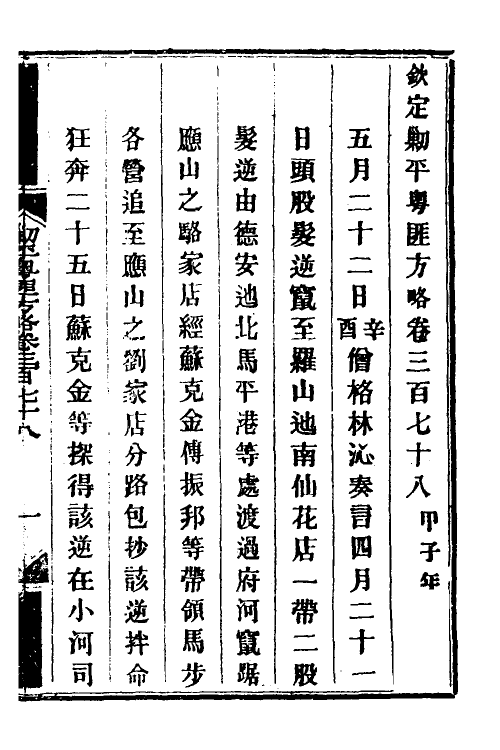 欽定勦平粵匪方略卷三百七十八 甲子年
五月二十二日辛酉僧格林沁奏言四月二十一
日頭股髮逆竄至羅山迆南仙花店一帶二股
髮逆由德安迆北馬平港等處渡過府河竄踞
應山之駱家店經蘇克金傳振邦等帶領馬步
各營追至應山之劉家店分路包抄該逆拌命
狂奔二十五日蘇克金等探得該逆在小河司
卷三百七十八 一